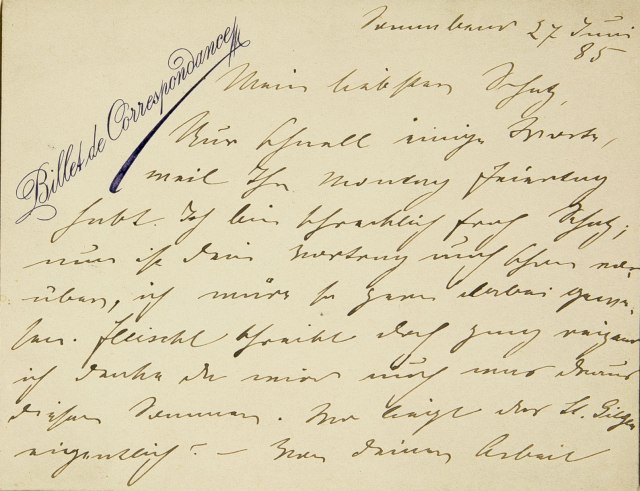 Billet de Correspondance
Sonnabend 27 Juni
85
Mein liebster Schatz,
Nur schnell einige Worte,
weil Ihr Montag Feiertag
habt. Ich bin schrecklich froh Schatz,
nun ist Dein Vortrag auch schon vor-
über, ich wäre so gern dabei gewe-
sen. Fleischl schreibt doch ganz reizend
ich denke da wird noch was daraus
diesen Sommer. Wo liegt das St. Gilgen
eigentlich? – Von Deiner Arbeit